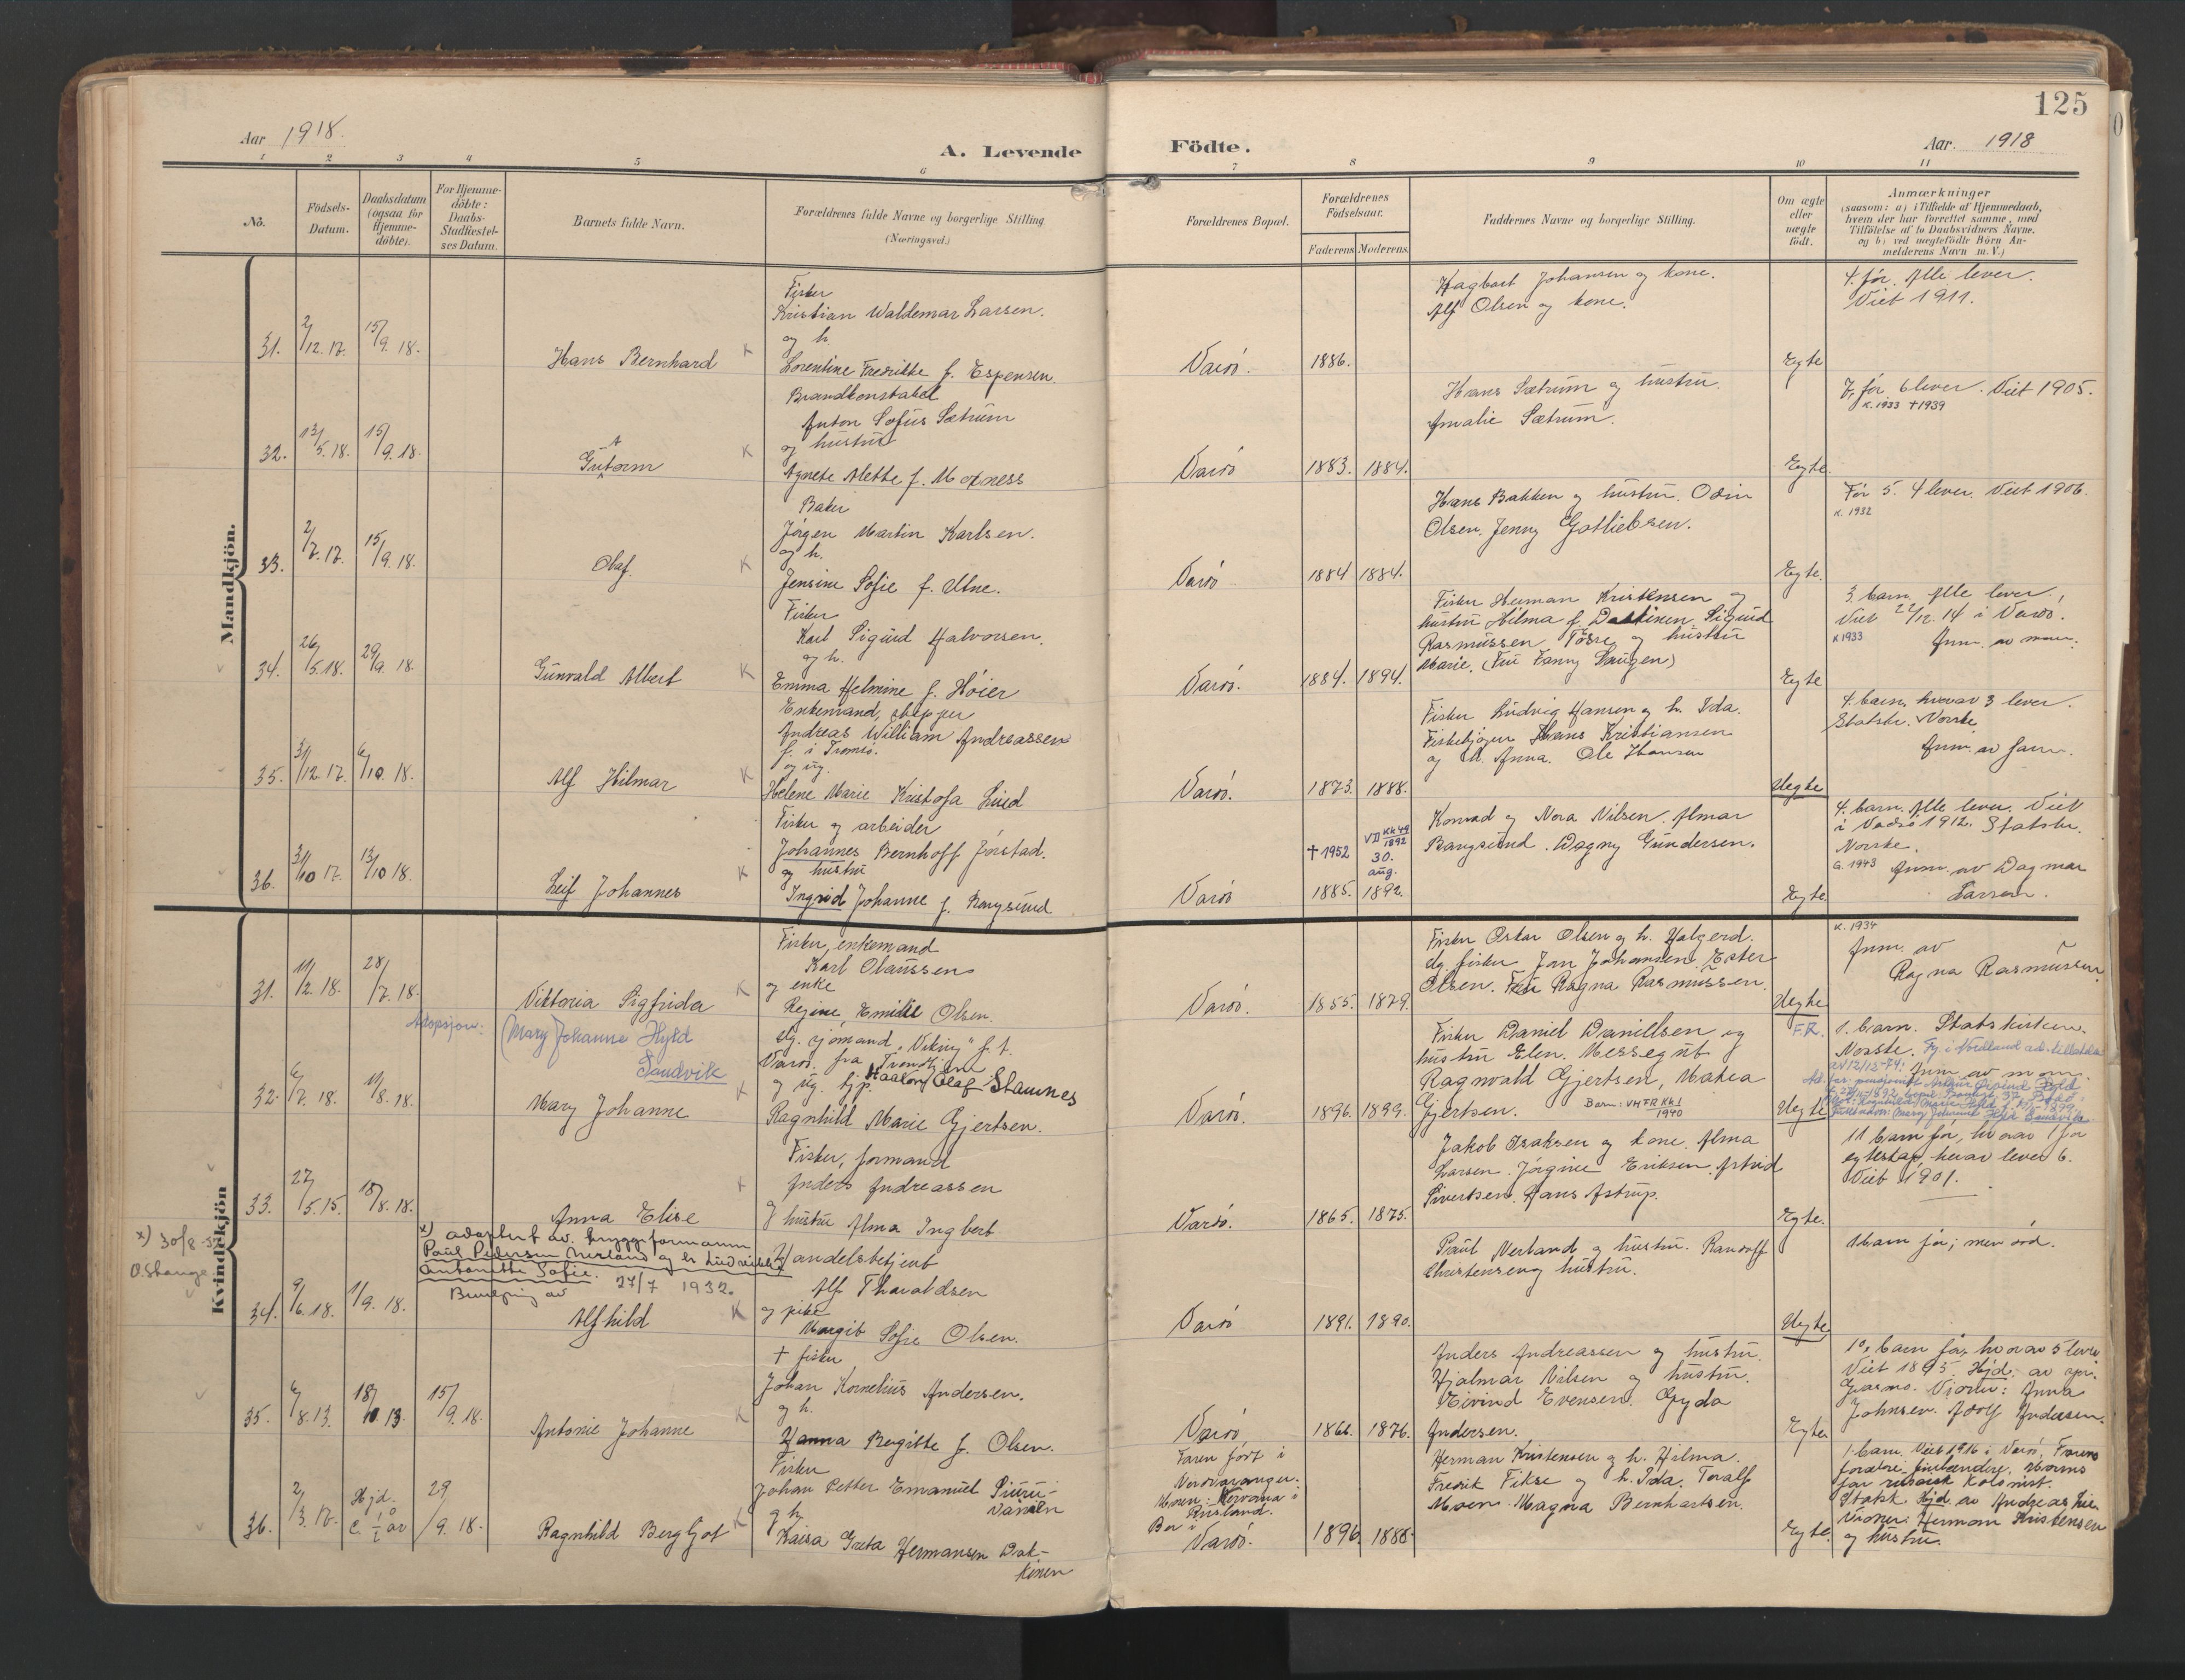 125
Aar 1918.
A. Levende Födte.
Aar. 1918
1 2 3 4 5 6 7 8 9 10 11
No.
Födsels-Datum.
Daabsdatum (ogsaa för Hjemme-döbte).
For Hjemme-döbte: Daabs-Stadfestel-ses Datum.
Barnets fulde Navn.
Forældrenes fulde Navne og borgerlige Stilling
(Næringsvei.)
Forældrenes Bopæl.
Forældrenes Födselsaar.
Faderens Moderens
Faddernes Navne og borgerlige Stilling.
Om ægte eller uægte födt.
Anmærkninger
(saasom: a) i Tilfælde af Hjemmedaab,
hvem der har forrettet samme, med
Tilföielse af to Daabsvidners Navne.
og b) ved uægtefödte Börn An-
melderens Navn m. V.)
Mandkjön.
31. 2/12. 17. 15/9. 18.
Hans Bernhard K
Fisker
Kristian Waldemar Larsen.
og h.
Lorentine Fredrikke f. Espensen.
Vardö. 1886.
Hagbart Johansen og kone.
Alf Olsen og kone.
Egte
4. för. Alle lever.
Viet 1911.
32. 13/5. 18. 15/9. 18.
Gutorm K
Brandkonstabel
Anton Sofus Sætrum
og hustru
Agnete Mette f. Moxness
Vardö 1883. 1884.
Hans Sætrum og hustru.
Amalie Sætrum.
Egte
7, för 6 lever. Viet 1905.
K. 1933 † 1939
33. 2/7. 17. 15/9. 18.
Olaf. K
Baker
Jörgen Martin Karlsen.
og h.
Jensine Sofie f. Altne.
Vardö 1884 1884.
Hans Bakken og hustru. Odin
Olsen. Jenny Gotliebsen.
Egte.
För 5. 4 lever. Viet 1906.
K. 1932
34. 26/5. 18. 29/9. 18.
Gunvald Albert K
Fisker
Karl Sigurd Halvorsen.
og h.
Emma Helmine f. Höier
Vardö. 1884. 1894.
Fisker Herman Kristensen og
hustru Hilma f. Daskinen, Sigurd
Rasmussen Tosre og hustru
Marie. (Fru Fanny Haugen)
Egte
3 barn. Alle lever.
Viet 22/12. 14 i Vardö.
K 1933 Anm. av moren.
35. 3/12. 17. 6/10. 18.
Alf Hilmar K
Enkemand, skipper
Andreas William Andreassen
f. i Tromsö.
og ug.
Helene Marie Kristofa Lund
Vardö. 1873. 1888.
Fisker Ludvig Hansen og h. Ida.
Fiskekjöper Hans Kristiansen
og h. Anna. Ole Hansen
Uegte
4. barn, hvorav 3 lever.
Statsk. Norske
Anm. av faren.
36. 31/10 17. 13/10 18.
Leif Johannes K
Fisker og arbeider
Johannes Bernhoff Jörstad.
og hustru
Ingrid Johanne f. Bangsund
† 1952 VD Kk 49/1892 30. aug.
Vardö 1885. 1892.
Konrad og Nora Nilsen. Almar
Bangsund. Dagny Gundersen.
Egte.
4. barn. Alle lever. Viet
i Vadsö 1912. Statsk.
Norske.
G. 1943 Anm. av Dagmar
Larsen.
Kvindekjön
31. 11/2. 18. 28/7. 18.
Viktoria Sigfrida K
Fisker, enkemand
Karl Olaussen
og enke
Regine Emilie Olsen.
Vardö. 1855. 1879.
Fisker Oskar Olsen og h. Halgerd.
Ug. fisker Jon Johansen. Ester
Olsen. Fru Ragna Rasmussen.
Uegte
K. 1934
Anm. av
Ragna Rasmussen
32. 6/7. 18. 11/8. 18.
Adopsjon: (Mary Johanne Hyld
Sandvik
Mary Johanne K
Ug. sjömand "Viking" f. t.
Vardö. fra Trondhjem
Haakon Olaf Stamnes
og ug. hjp.
Ragnhild Marie Gjertsen.
Vardö. 1896. 1899.
Fisker Daniel Daniellsen og
hustru Elen. Messegut
Ragnvald Gjertsen, Matea
Gjertsen. Barn: VH FR Kk I 1940
F.R.
Uegte
1. barn. Statskirken.
Norske. Fy. i Nordland ad. tillatelse
av 12/12-74: Anm. av mor.
33. 27/5. 15. 18/8. 18.
Anna Elise
Fisker, formand
Anders Andreassen
og hustru Alma Ingbert
Vardö. 1865. 1875.
Jakob Isaksen og kone. Alma
Larsen. Jörgine Eriksen. Astrid
Sivertsen. Hans Astrup.
Egte.
11 barn för, hvorav 1 för
egteskap, herav lever 6.
Viet 1901.
x) 30/8-32
O. Stange
x) adoptert av bryggeformann
Paul Pedersen Nerland og h.
Antonette Sofie. 27/7 1932.
Bevilgning av
34. 9/6. 18. 1/9. 18.
Alfhild K
Handelsbetjent
Alf Thoraldsen
og pike
Margit Sofie Olsen.
Vardö 1891. 1890.
Paul Nerland og hustru. Randolf
Christensen og hustru.
Uegte
1 barn för; men död.
35. 6/8. 13. 18/10. 13. 15/9. 18.
Antonie Johanne K
† fisker
Johan Kornelius Andersen.
og h.
Hanna Bergitte f. Olsen.
Vardö 1866. 1876.
Anders Andreassen og hustru.
Hjalmar Nilsen og hustru.
Eivind Evensen. Gyda
Andersen.
Egte
10, barn för, hvorav 5 lever
Viet 1895. Hjd. av spr.
Gjærmo. Vidner: Anna
Johnsen. Adolf Andersen.
36. 2/3. 17. Hjd. c. 1/2 år 29/9. 18.
Ragnhild Bergljot K
Fisker
Johan Petter Emanuel Siuru-
vainen
og h.
Kaisa Greta Hermansen Dak-
kinen
Faren född i
Nordvaranger.
Moren: Korvana i
Rusland.
Bor i
Vardö. 1896. 1888
Herman Kristensen og h. Hilma.
Fredrik Fikse og h. Ida. Toralf
Moen. Magna Bernhartsen.
Egte.
1. barn. Viet 1916 i Vardö. Farens
forældre finlændere. Morens
far russisk kolonist.
Statsk. Hjd. av Andreas
Vidner: Herman Kristensen
og hustru.